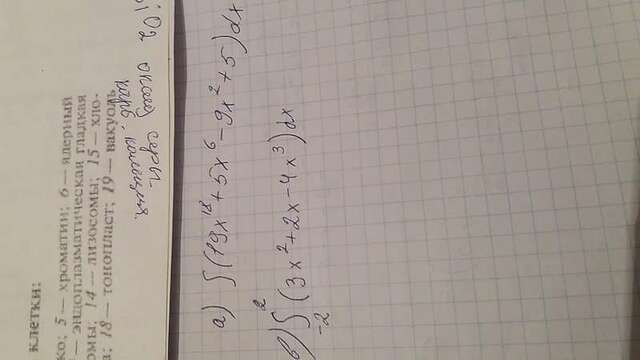 клетки:
ко; 5 — хроматин; 6 — ядерный
— эндоплазматическая гладкая
омы; 14 — лизосомы; 15 — хло-
а; 18 — тонопласт; 19 — вакуоль
O2
серы.
а) ∫(19x^18+5x^6-9x^2+5)dx
в) ∫_{-2}^{2} (3x^2+2x-4x^3)dx